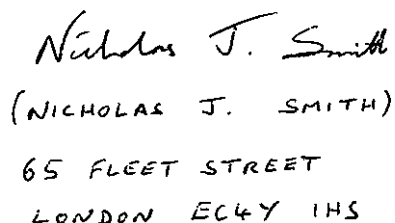 Nicholas J. Smith
(NICHOLAS J. SMITH)
65 FLEET STREET
LONDON EC4Y 1HS